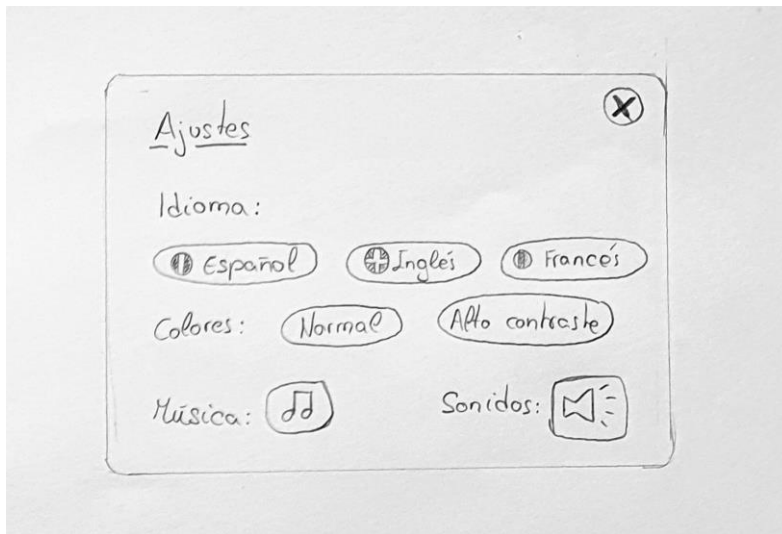 Ajustes
Idioma:
Español Inglés Francés
Colores: Normal Alto contraste
Música: Sonidos: